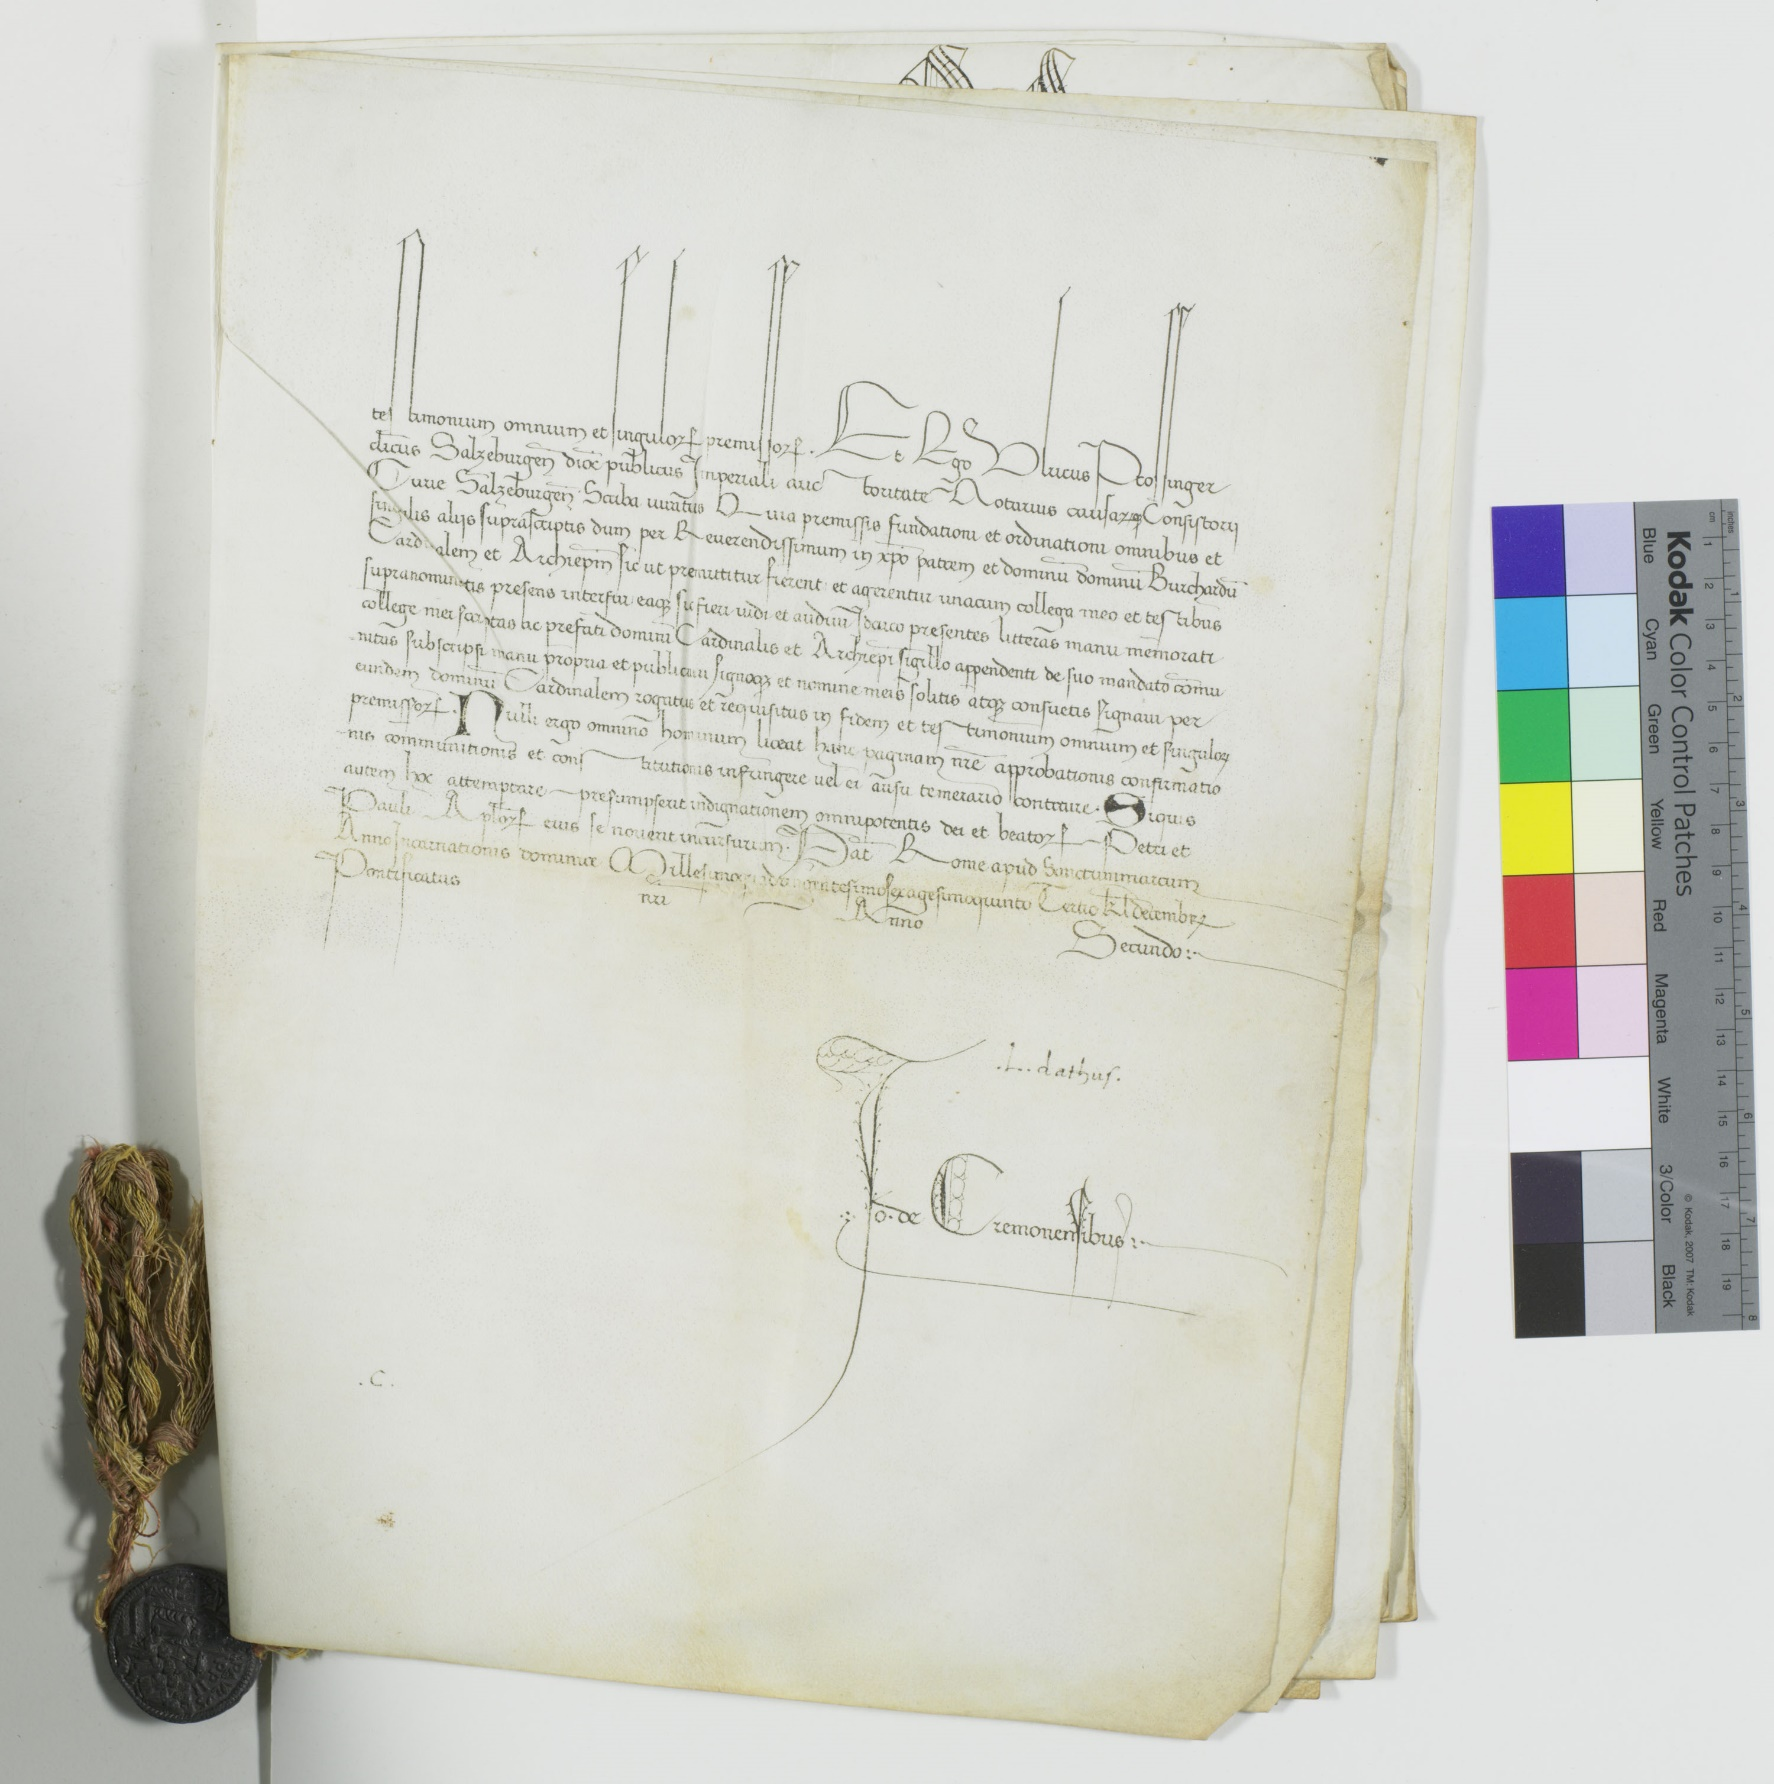 testimonium omnium et singulorꝝ premissorꝝ. Et Ego Vlricus Ptossinger
cl̅icus Salzeburgen̅ dioc̅ publicus Imperiali auctoritate Notarius causarꝝ Consistorij
Curie Salzeburgen̅ Scriba iuratus Quia premissis fundationi et ordinationi omnibus et
singulis aliis suprascriptis dum per Reuerendissimum in xp̅o patrem et dominu̅ dominu̅ Burchardu̅
Cardinalem et Archiep̅m sic ut premittitur fierent et agerentur unacum collega meo et testibus
supranominatis presens interfui eaqꝫ sic fieri uidi et audiui Idcirco presentes litteras manu memorati
college mei scriptas ac prefati domini Cardinalis et Archiep̅i sigillo appendenti de suo mandato co̅mu
nitas subscripsi manu propria et publicaui signoqꝫ et nomine meis solitis atqꝫ consuetis signaui per
eundem dominu̅ Cardinalem rogatus et requisitus in fidem et testimonium omnium et singulorꝝ
premissorꝝ. Nulli ergo omnino hominum liceat hanc paginam nr̅e approbationis confirmatio
nis communitionis et constitutionis infringere uel ei ausu temerario contraire. Siquis
autem hoc attemptare presumpserit indignationem omnipotentis dei et beatorꝝ Petri et
Pauli Ap̅lorꝝ eius se nouerit incursurum. Dat̅ Rome apud Sanctummarcum
Anno Incarnationis dominice Millesimoquadringentesimosexagesimoquinto Tertio kl̅ decembrꝫ
Pontificatus nr̅i Anno Secundo:
.L. dathus.
Jo. de Cremonensibus:
.C.
Kodak Color Control Patches
Blue Cyan Green Yellow Red Magenta White 3/Color Black
© Kodak, 2007 TM: Kodak
inches 1 2 3 4 5 6 7 8
cm 1 2 3 4 5 6 7 8 9 10 11 12 13 14 15 16 17 18 19